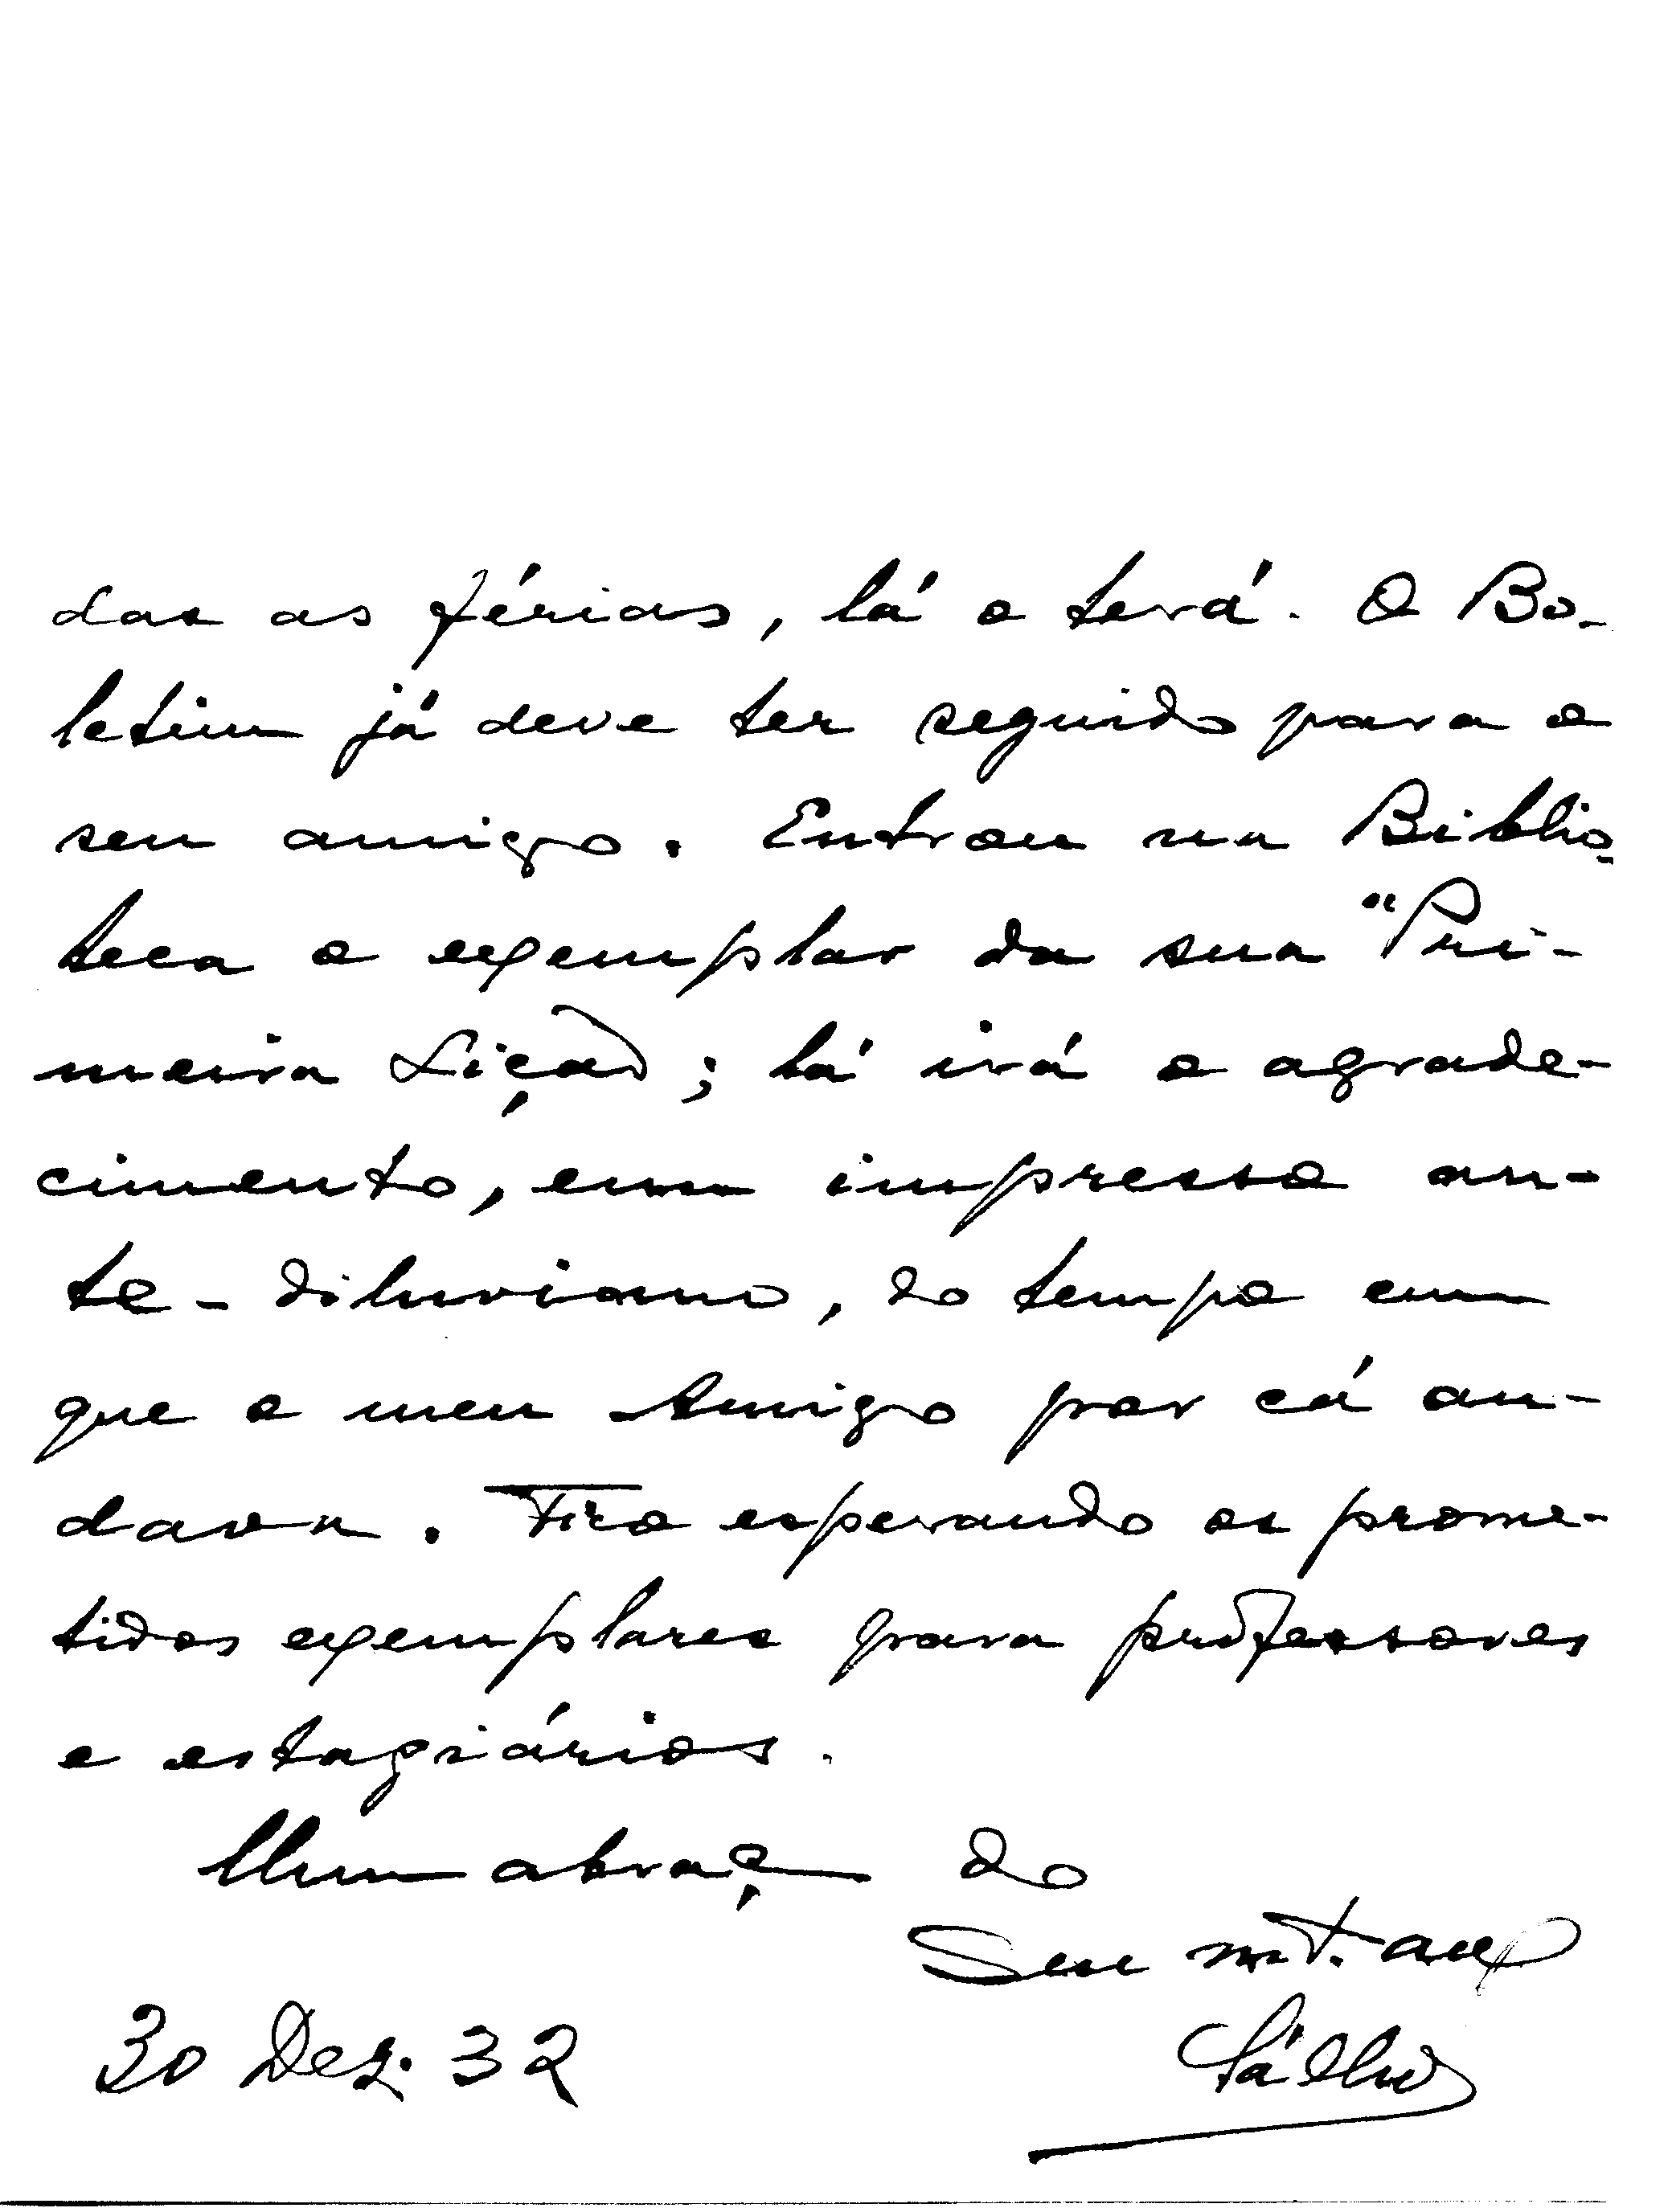 das as férias, lá o terá. O Bo-
letim já deve ter seguido para o
seu amigo. Entrou na Biblio-
teca o exemplar da sua "Pri-
meira Lição; lá irá o agrade-
cimento, em impresso an-
te-diluviano, do tempo em
que o meu Amigo por cá an-
dava. Fico esperando os prome-
tidos exemplares para professores
e estagiários.
Um abraço do
Seu mt. amº
30 Dez. 32